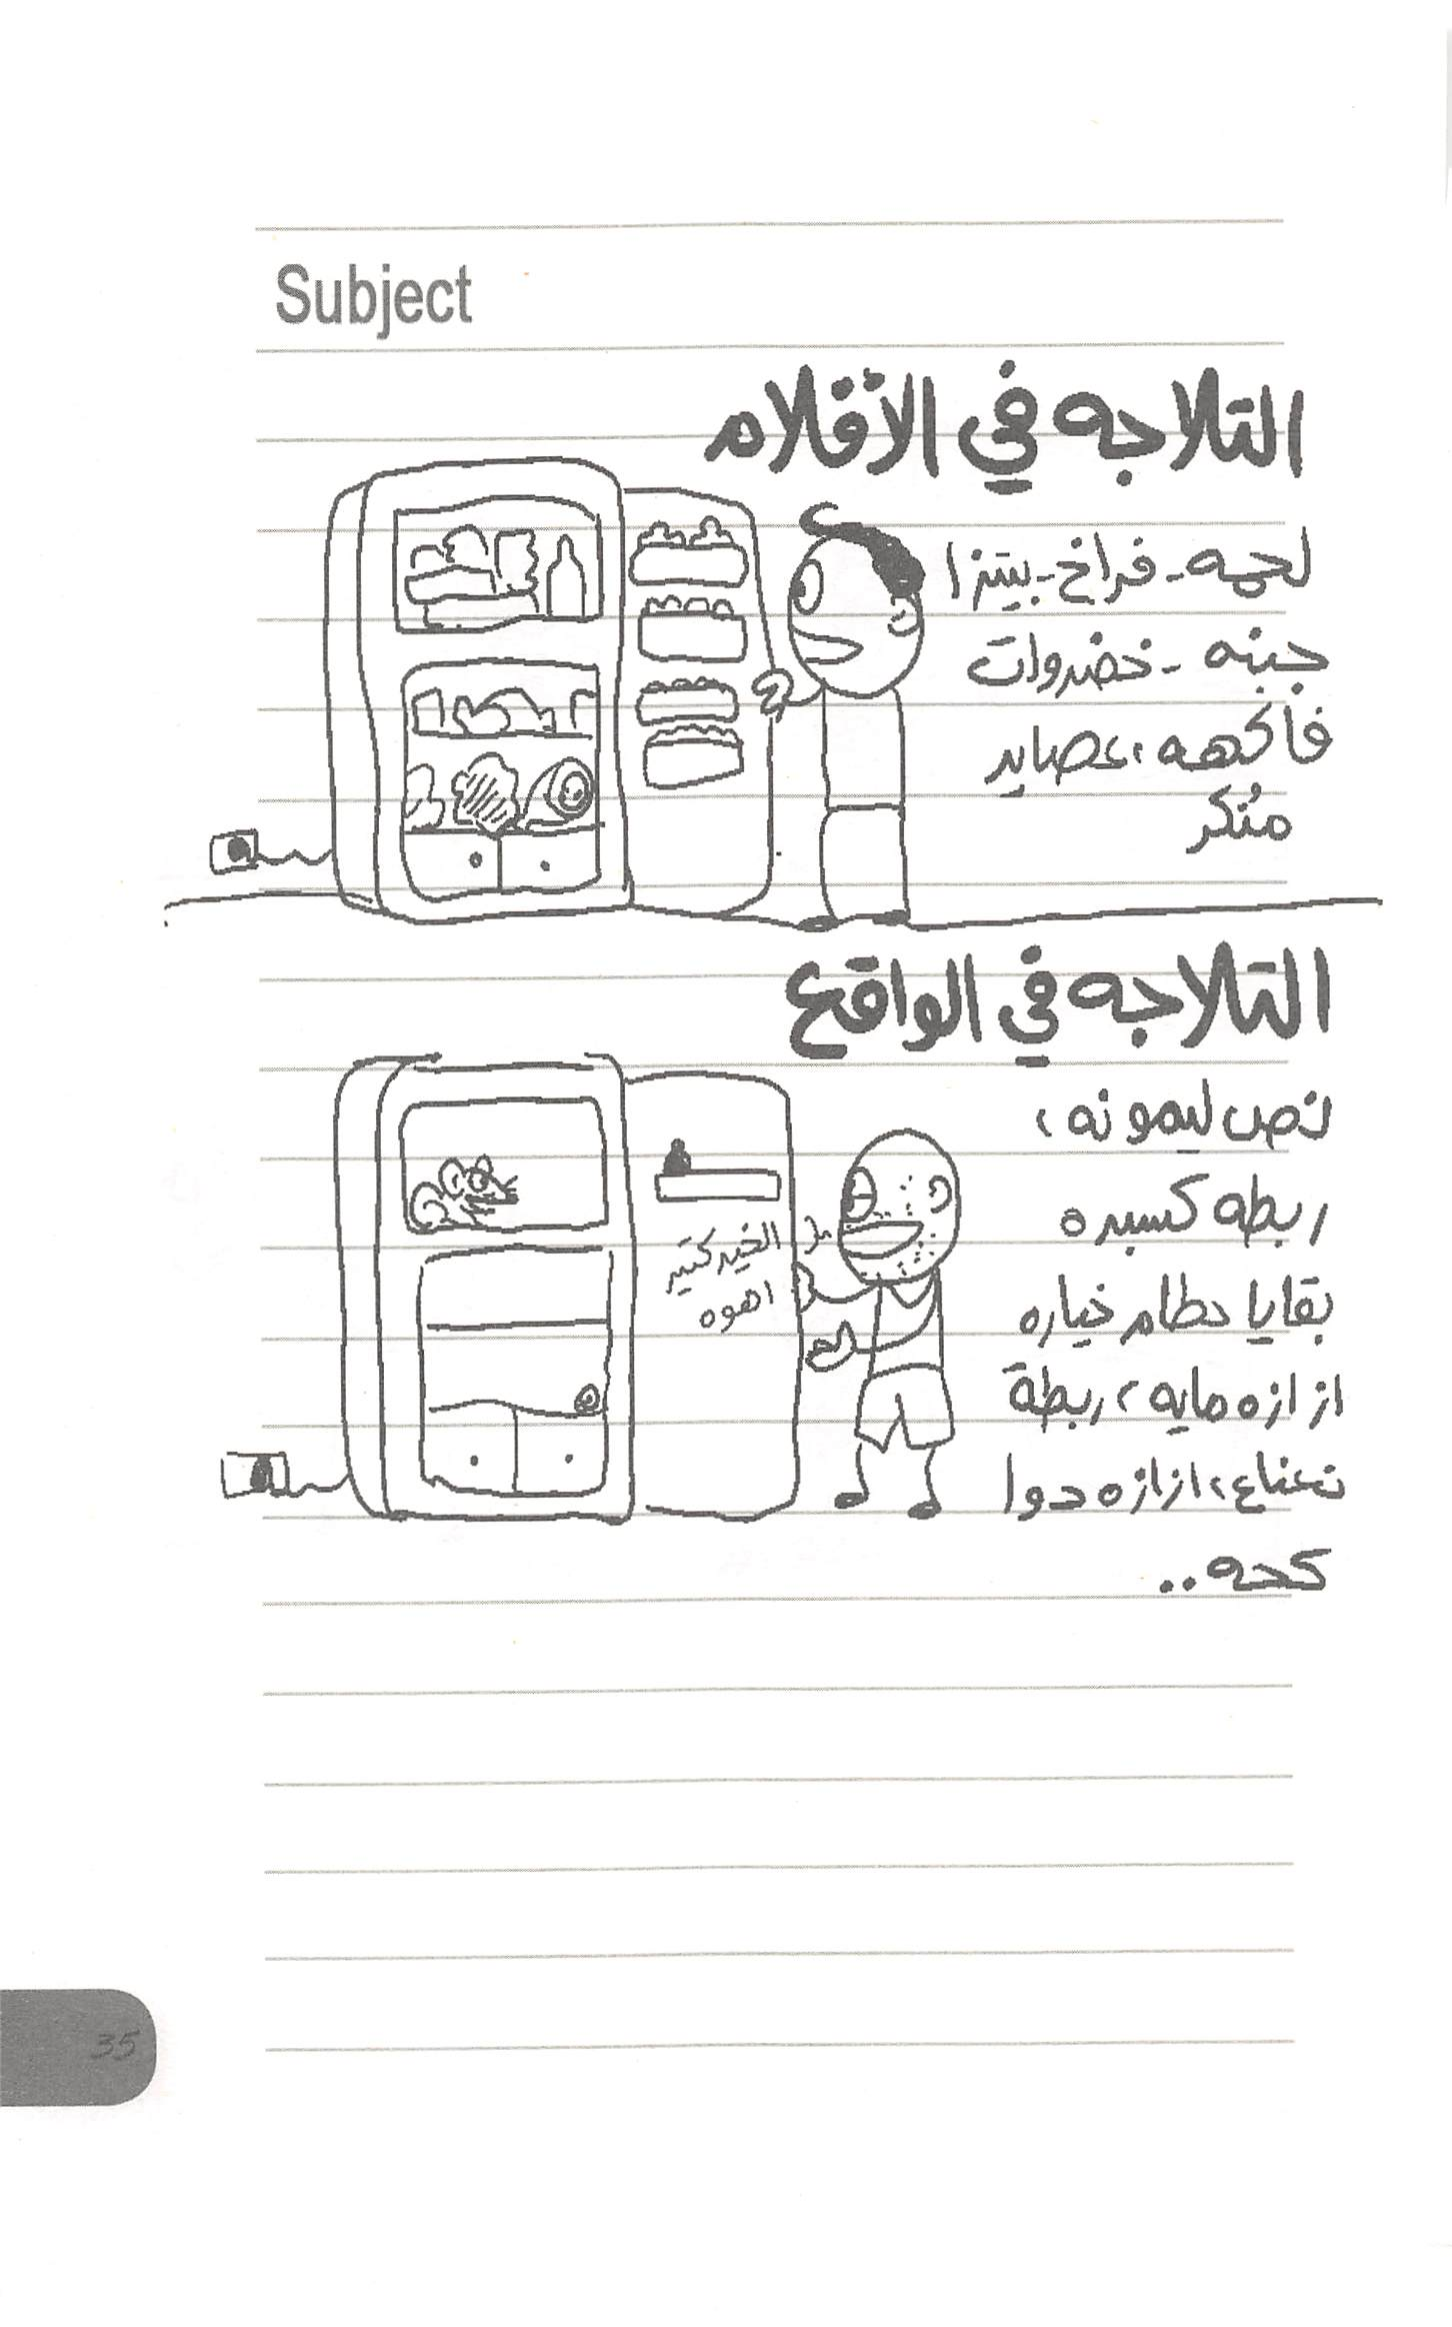 Subject
التلاجه في الأفلام
لحمه - فراخ - بيتزا
جبنه - خضروات
فاكهه، عصاير
مُنكر
التلاجه في الواقع
نص ليمونه،
ربطه كسبره
بقايا حطام خياره
ازازه مايه، ربطة
نعناع، ازازه دوا
كحه..
الخير كتير
اهوه
35